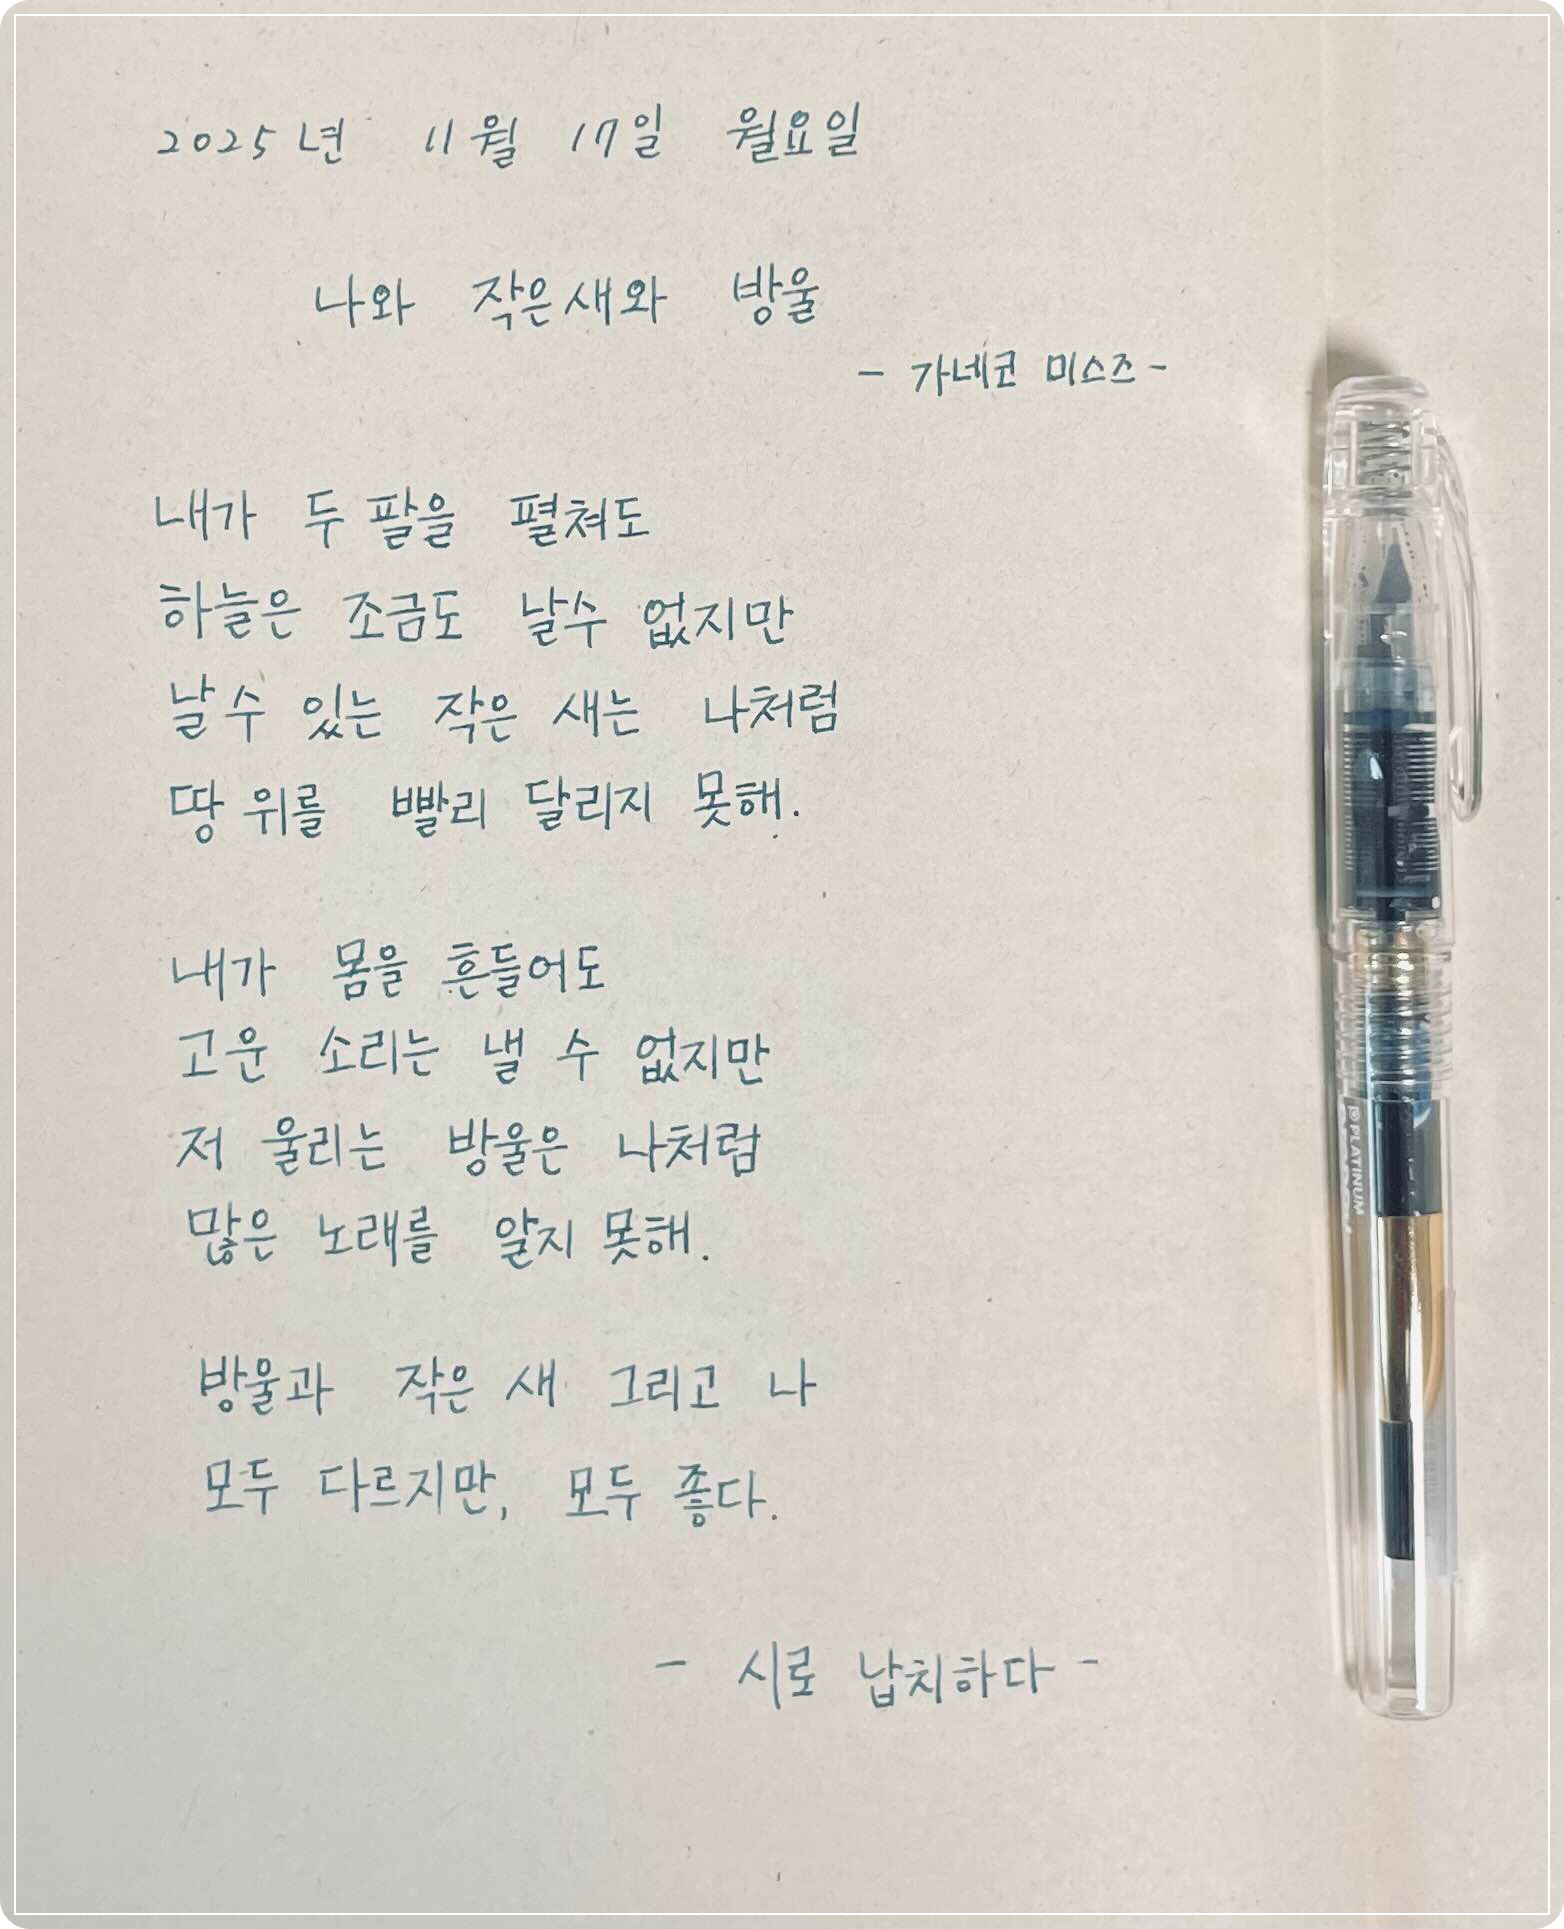 2025년 11월 17일 월요일
나와 작은새와 방울
- 가네코 미스즈 -
내가 두 팔을 펼쳐도
하늘은 조금도 날수 없지만
날 수 있는 작은 새는 나처럼
땅 위를 빨리 달리지 못해.
내가 몸을 흔들어도
고운 소리는 낼 수 없지만
저 울리는 방울은 나처럼
많은 노래를 알지 못해.
방울과 작은 새 그리고 나
모두 다르지만, 모두 좋다.
- 시로 납치하다 -
PLATINUM